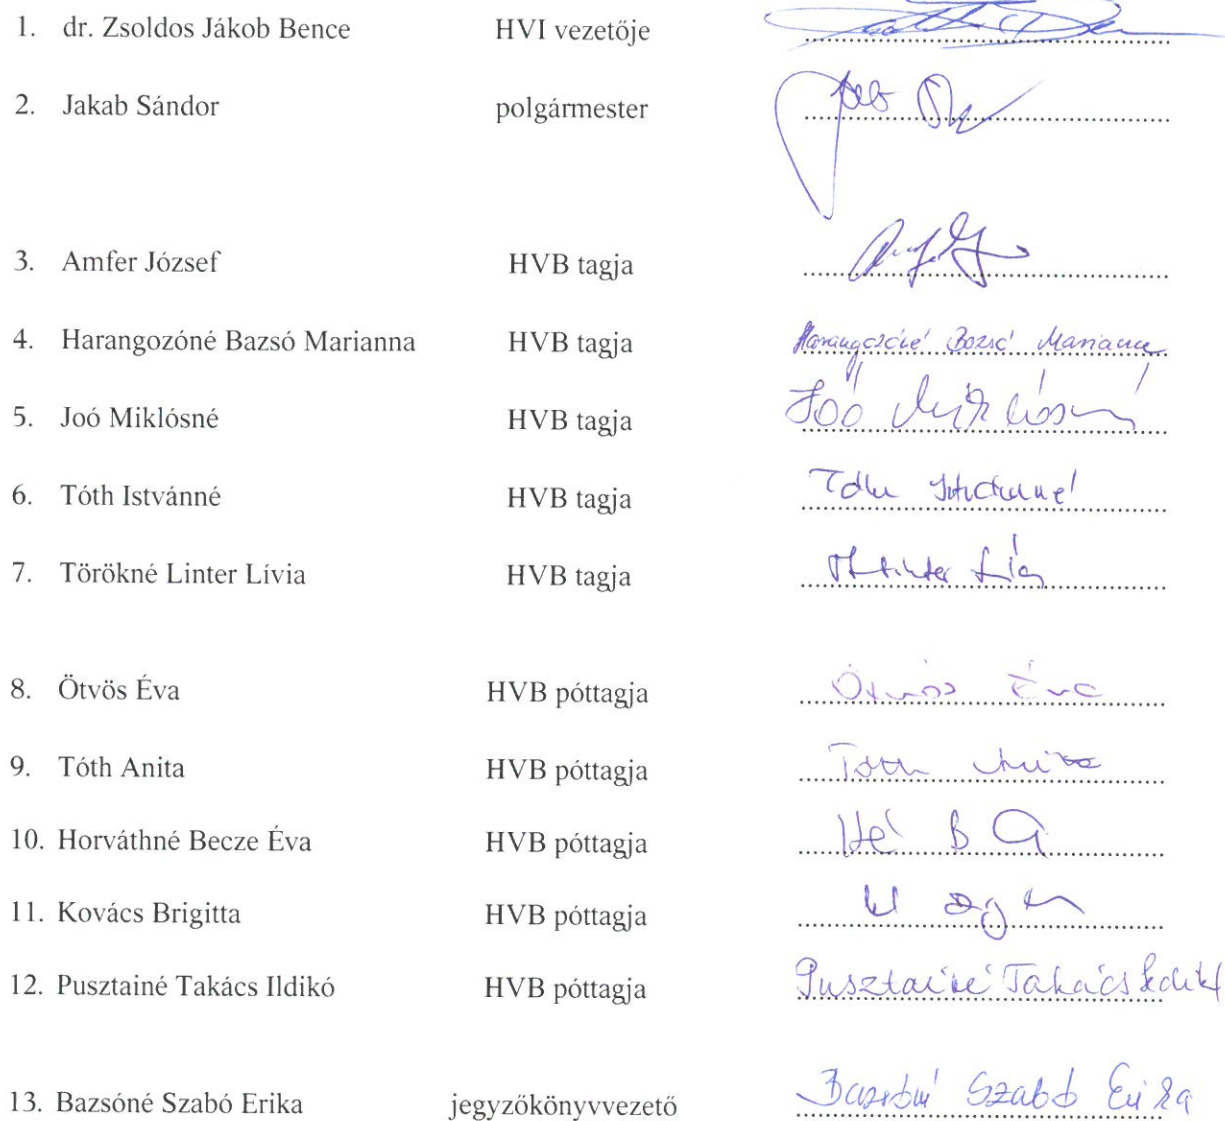 1. dr. Zsoldos Jákob Bence HVI vezetője
2. Jakab Sándor polgármester
3. Amfer József HVB tagja
4. Harangozóné Bazsó Marianna HVB tagja Harangozóné Bazsó Marianna
5. Joó Miklósné HVB tagja Joó Miklósné
6. Tóth Istvánné HVB tagja Tóth Istvánné
7. Törökné Linter Lívia HVB tagja
8. Ötvös Éva HVB póttagja Ötvös Éva
9. Tóth Anita HVB póttagja Tóth Anita
10. Horváthné Becze Éva HVB póttagja
11. Kovács Brigitta HVB póttagja
12. Pusztainé Takács Ildikó HVB póttagja Pusztainé Takács Ildikó
13. Bazsóné Szabó Erika jegyzőkönyvvezető Bazsóné Szabó Erika